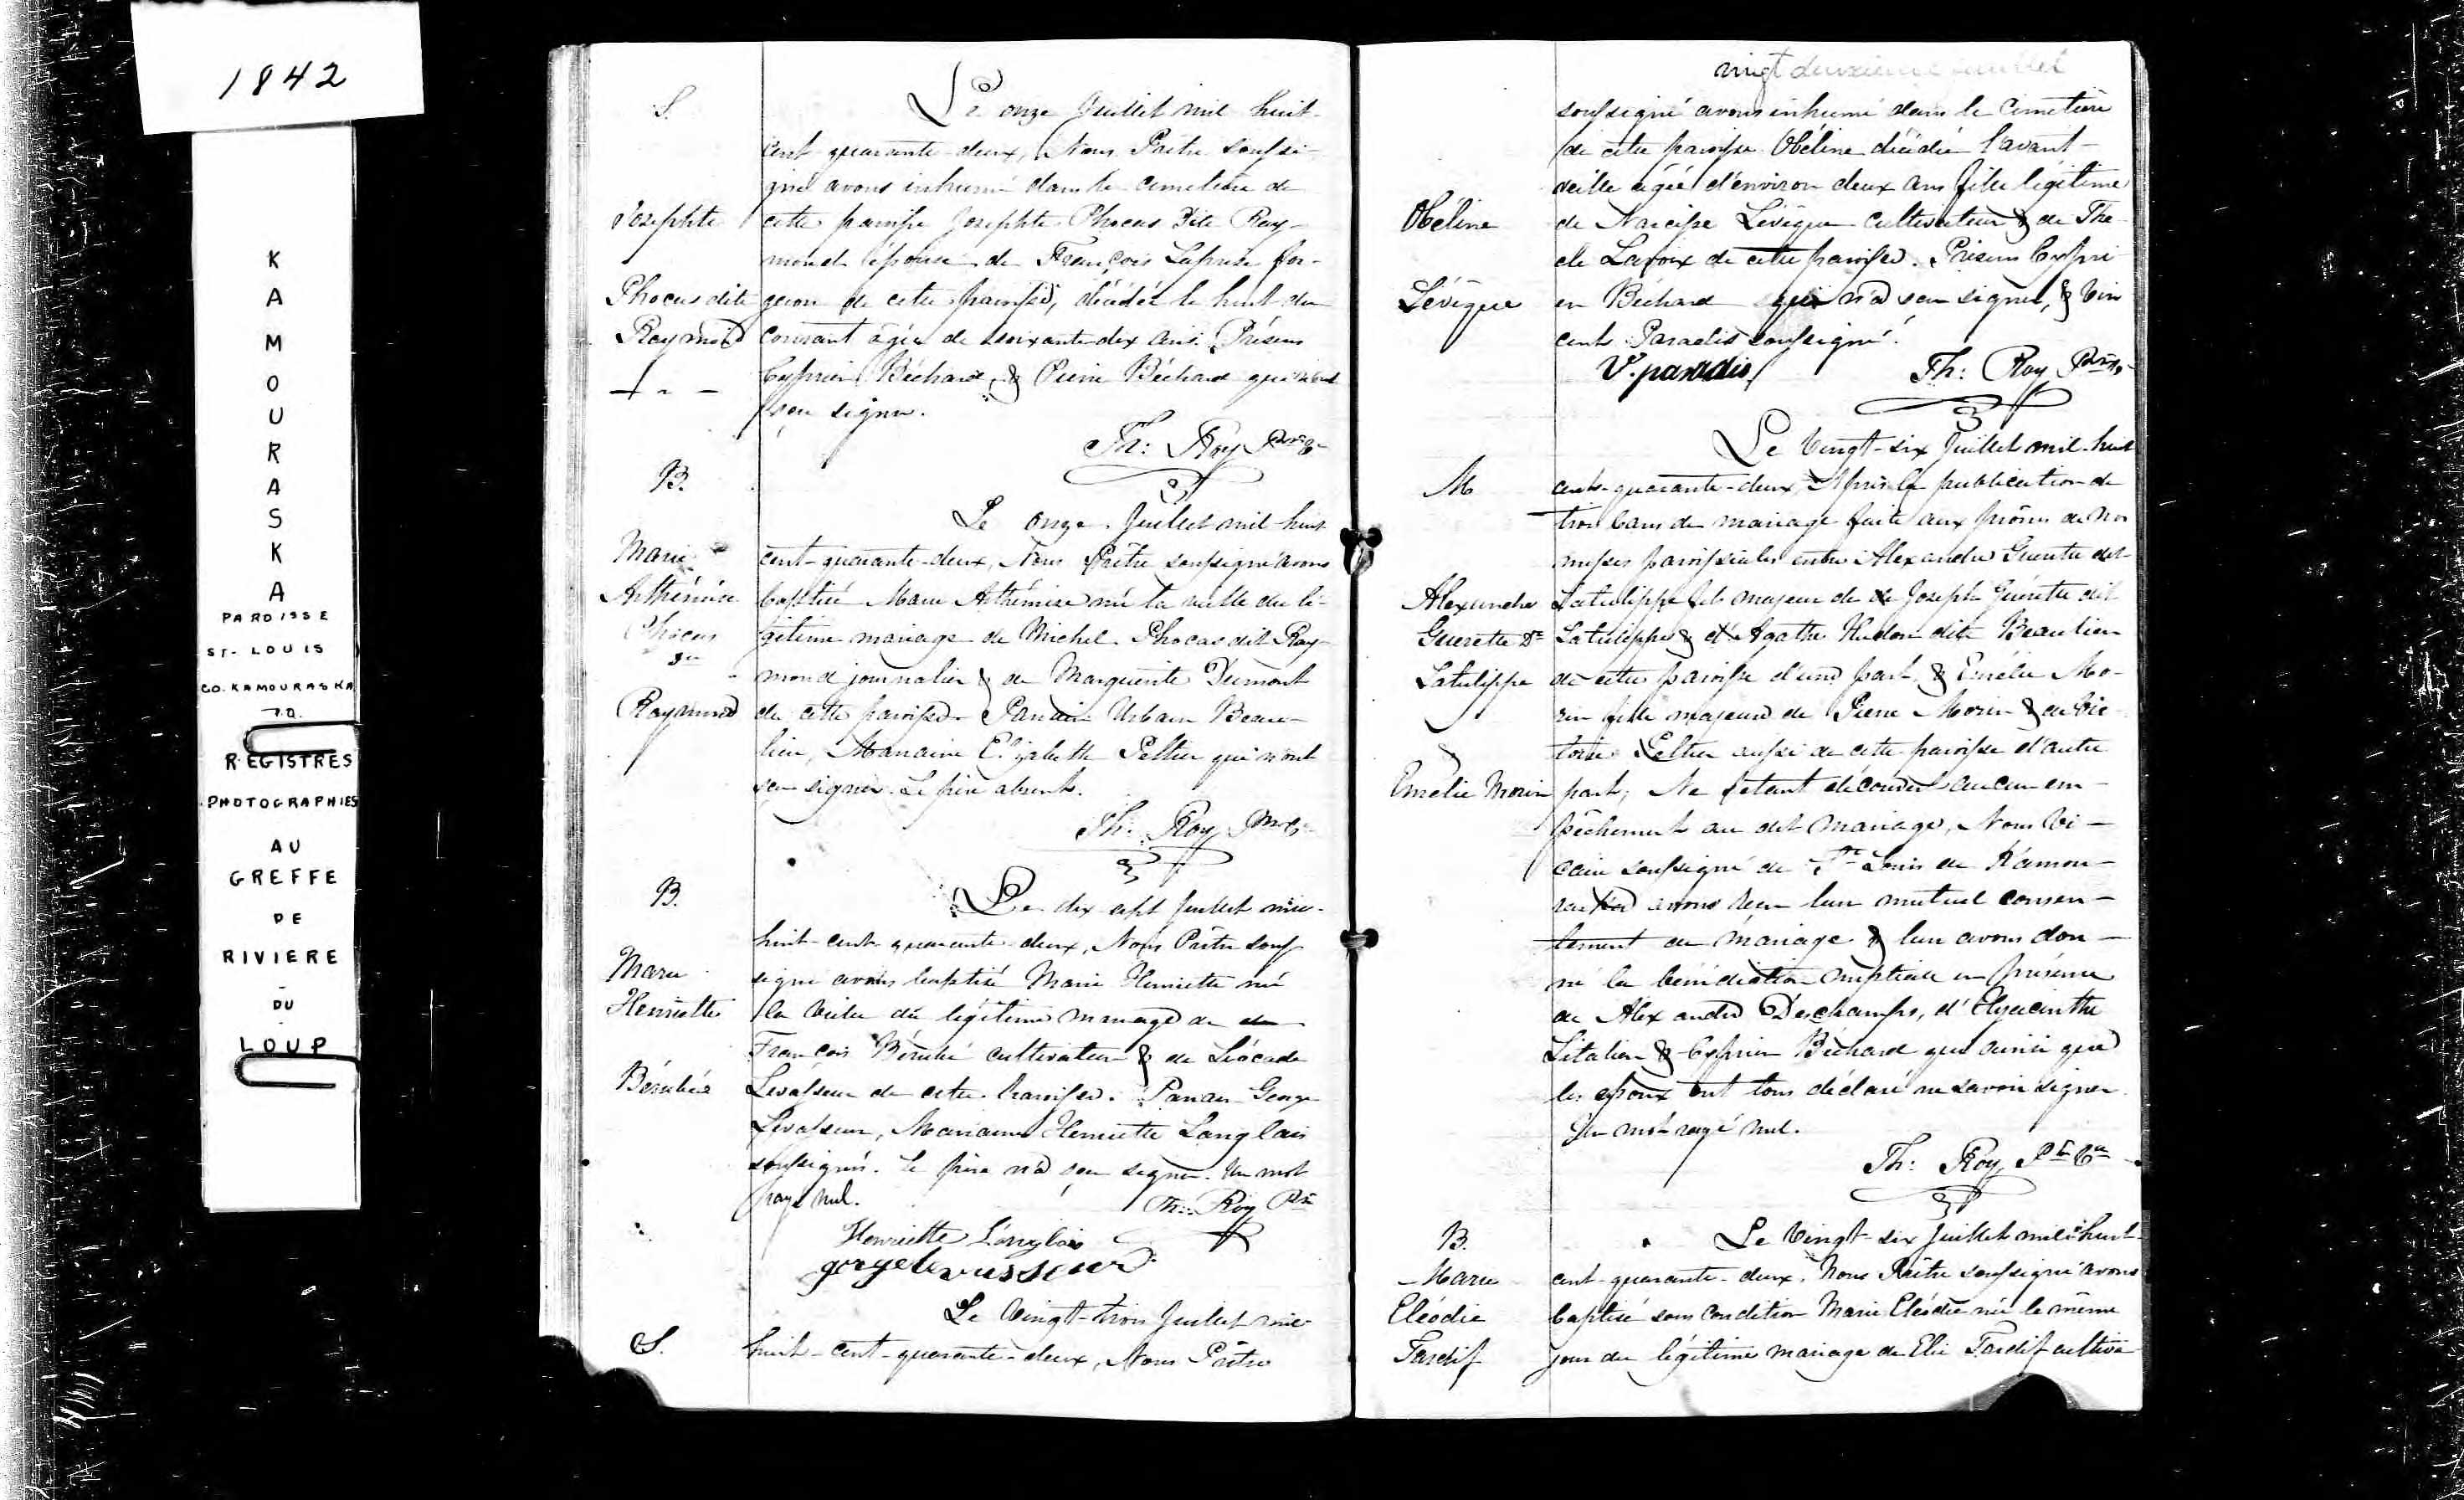 1842
KAMOURASKA
PAROISSE
ST-LOUIS
CO. KAMOURASKA
P.Q.
REGISTRES
PHOTOGRAPHIES
AU
GREFFE
DE
RIVIERE
-
DU
-
LOUP
S.
Josephte
Phocus dite
Raymond
Le onze Juillet mil huit-
cent-quarante-deux, Nous Prêtre soussi-
gné avons inhumé dans le cimetière de
cette paroisse Josephte Phocus dite Ray-
mond épouse de François Laprise for-
geron de cette paroisse, décédée le huit du
courant agée de soixante-dix ans. Présens
Cyprien Béchard, & Pierre Béchard qui n'ont
sçu signer.
Th: Roy Ptre
B.
Marie
Arthémise
Phocus
dit
Raymond
Le onze Juillet mil-huit
cent-quarante-deux, Nous Prêtre soussigné avons
baptisé Marie Arthémise née la veille du lé-
gitime mariage de Michel Phocas dit Ray-
mond journalier & de Marguerite Dumont
de cette paroisse. Parrain Urbain Beau-
lieu, Marraine Elizabeth Peltier qui n'ont
sçu signer. Le père absent.
Th: Roy Ptre
B.
Marie
Henriette
Bérubée
Le dix sept Juillet mil-
huit-cent-quarante-deux, Nous Prêtre sous-
signé avons baptisé Marie Henriette née
la veille du légitime mariage de de
François Bérubé cultivateur & de Léocade
Levasseur de cette paroisse. Parrain George
Levasseur, Marraine Henriette Langlais
soussignés. Le père n'a sçu signer. Un mot
rayé nul.
Th: Roy Ptre
Henriette Langlais
gorge levasseur
S.
Le Vingt-trois Juillet mil-
huit-cent-quarante-deux, Nous Prêtre
vingt deuxième feuillet
Obéline
Lévêque
soussigné avons inhumé dans le Cimetière
de cette paroisse Obéline décédée l'avant-
veille agée d'environ deux ans fille légitime
de Narcisse Lévêque cultivateur & de The-
cle Lavoix de cette paroisse. Présens Cypri-
en Béchard qui n'a sçu signer, & Vin
cent Paradis soussigné.
V. paradis
Th: Roy Ptre
M
Alexandre
Guerette dt
Latulippe
Emélie Morin
Le Vingt-six Juillet mil-huit
cent-quarante-deux, Après la publication de
trois bans de mariage faite aux prônes de nos
messes paroissiales entre Alexandre Guerette dit
Latulippe fils majeur de de Joseph Guérette dit
Latulippe & d'Agathe Hudon dite Beaulieu
de cette paroisse d'une part, & Emélie Mo-
rin fille majeure de Pierre Morin & de Vic-
toire Peltier aussi de cette paroisse d'autre
part; Ne s'étant découvert aucun em-
pêchement au dit mariage, Nous Vi-
caire soussigné de St Louis de Kamou-
raska avons reçu leur mutuel consen-
tement de mariage & leur avons don-
né la bénédiction nuptiale en présence
de Alexandre Deschamps, d'Hyacinthe
Litalien & Cyprien Béchard qui ainsi que
les époux ont tous déclaré ne savoir signer.
Un mot rayé nul.
Th: Roy Ptre Vre
B.
Marie
Eléodie
Tardif
Le Vingt-six Juillet mil-huit-
cent-quarante-deux. Nous Prêtre soussigné avons
baptisé sous condition Marie Eléodie née le même
jour du légitime mariage de Elie Tardif cultiva-